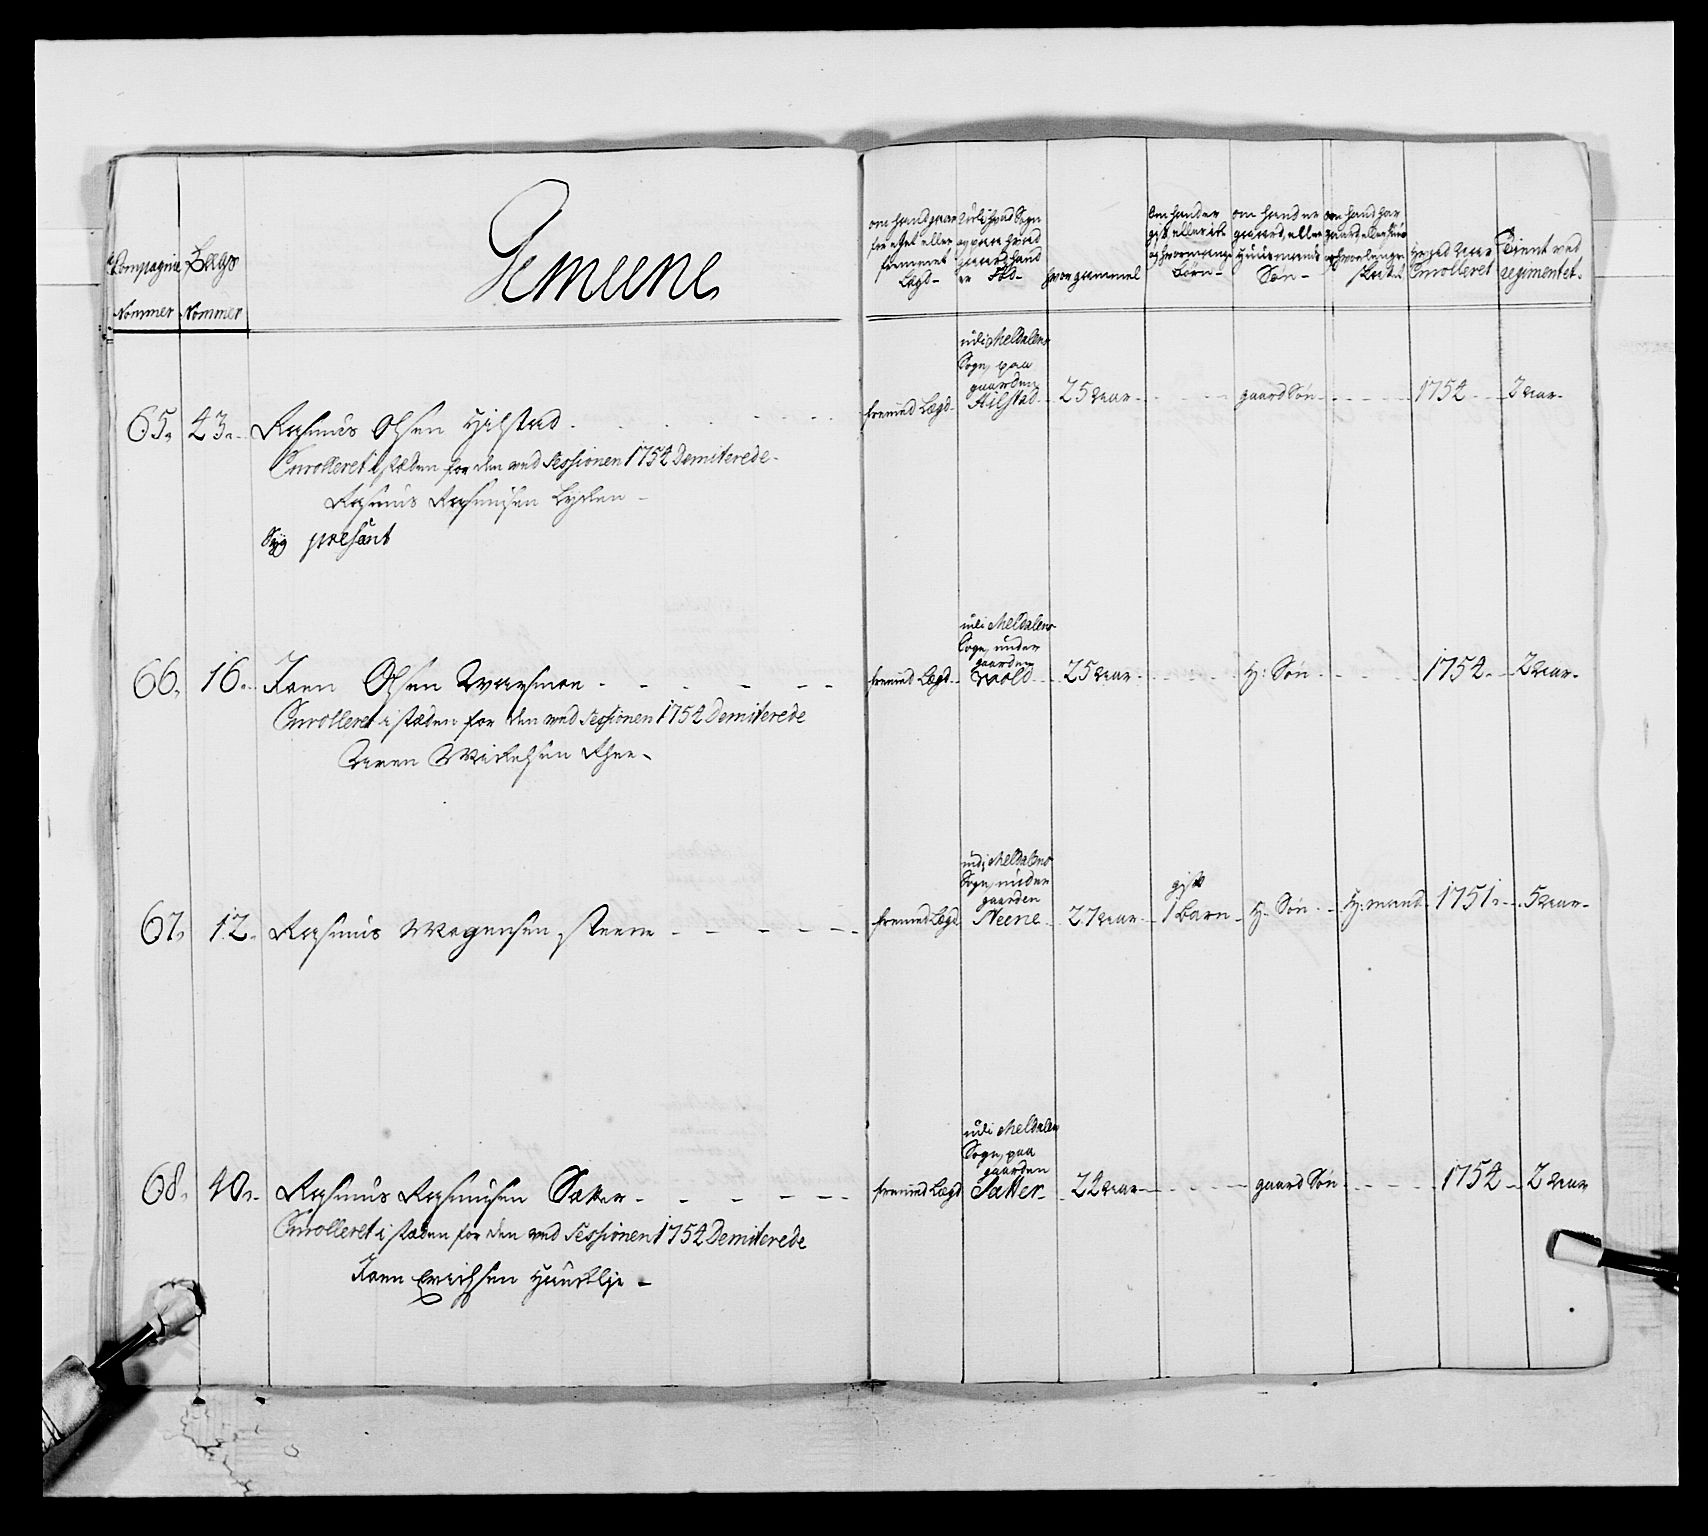 Compagnie
Nommer
Lægs
Nommer
Gemeene
om hand
for eget eller
fremmet
Lægd
udi hvad Sogn
og paa hvad
gaard hand
er fød
hvor gammel
om hand er
gift eller ikke
og hvor mange
børn
om hand er
gaard, eller
Huusmands
Søn
om hand har
gaard eller Huus
og hvor længe
hved Aar
Enrolleret
Tient ved
regimentet
65. 43. Rasmus Olsen Hilstad
Enrolleret i stæden for den ved Sessionen 1754 Demiterede
Rasmus Rasmusen
Syg præsent
fremmed Lægd
udi Meldalens
Sogn, paa
gaarden
Hilstad
25 aar
gaard Søn
1754
2 aar
66. 16. Joen Olsen
Enrolleret i stæden for den ved Sessionen 1754 Demiterede
fremmed Lægd
udi Meldalens
Sogn, under
gaarden
Wold
25 aar
H: Søn
1754
2 aar
67. 12. Rasmus Mogensen Steene
fremmed Lægd
udi Meldalens
Sogn, under
gaarden
27 aar
gift
1 Barn
H. Søn
H: mand
1751
5 aar
68. 40. Rasmus Rasmusen Sæter
Enrolleret i stæden for den ved Sessionen 1754 Demiterede
Joen Erichsen
fremmed Lægd
udi Meldalen
Sogn, paa
gaarden
Sætter
22 aar
gaard Søn
1754
2 aar